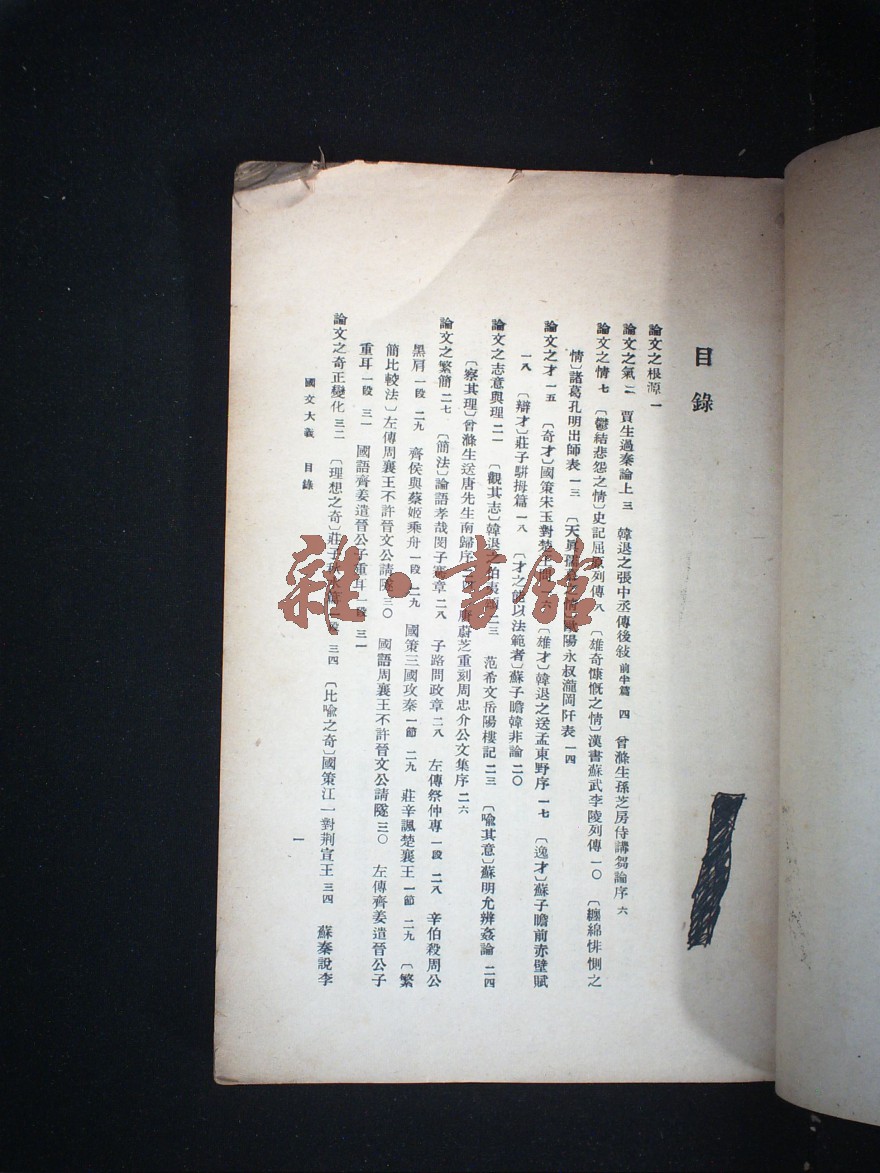 目錄
論文之根源 一
論文之氣 二 賈生過秦論上 三 韓退之張中丞傳後敍 前半篇 四 曾滌生孫芝房侍講芻論序 六
論文之情 七 〔鬱結悲怨之情〕史記屈原列傳 八 〔雄奇慷慨之情〕漢書蘇武李陵列傳 一〇 〔纏綿悱惻之
情〕諸葛孔明出師表 一三 〔天眞孺慕之情〕歐陽永叔瀧岡阡表 一四
論文之才 一五 〔奇才〕國策宋玉對楚王問 一六 〔雄才〕韓退之送孟東野序 一七 〔逸才〕蘇子瞻前赤壁賦
一八 〔辯才〕莊子駢拇篇 一八 〔才之能以法範者〕蘇子瞻韓非論 二〇
論文之志意與理 二一 〔觀其志〕韓退之伯夷頌 二三 范希文岳陽樓記 二三 〔喩其意〕蘇明允辨姦論 二四
〔察其理〕曾滌生送唐先生南歸序 二四 唐蔚芝重刻周忠介公文集序 二六
論文之繁簡 二七 〔簡法〕論語孝哉閔子騫章 二八 子路問政章 二八 左傳祭仲專 一段 二八 辛伯殺周公
黑肩 一段 二九 齊侯與蔡姬乘舟 一段 二九 國策三國攻秦 一節 二九 莊辛諷楚襄王 一節 二九 〔繁
簡比較法〕左傳周襄王不許晉文公請隧 三〇 國語周襄王不許晉文公請隧 三〇 左傳齊姜遣晉公子
重耳 一段 三一 國語齊姜遣晉公子重耳 一段 三一
論文之奇正變化 三二 〔理想之奇〕莊子秋水篇 一段 三四 〔比喩之奇〕國策江一對荆宣王 三四 蘇秦說李
國文大義 目錄
一
雜·書館